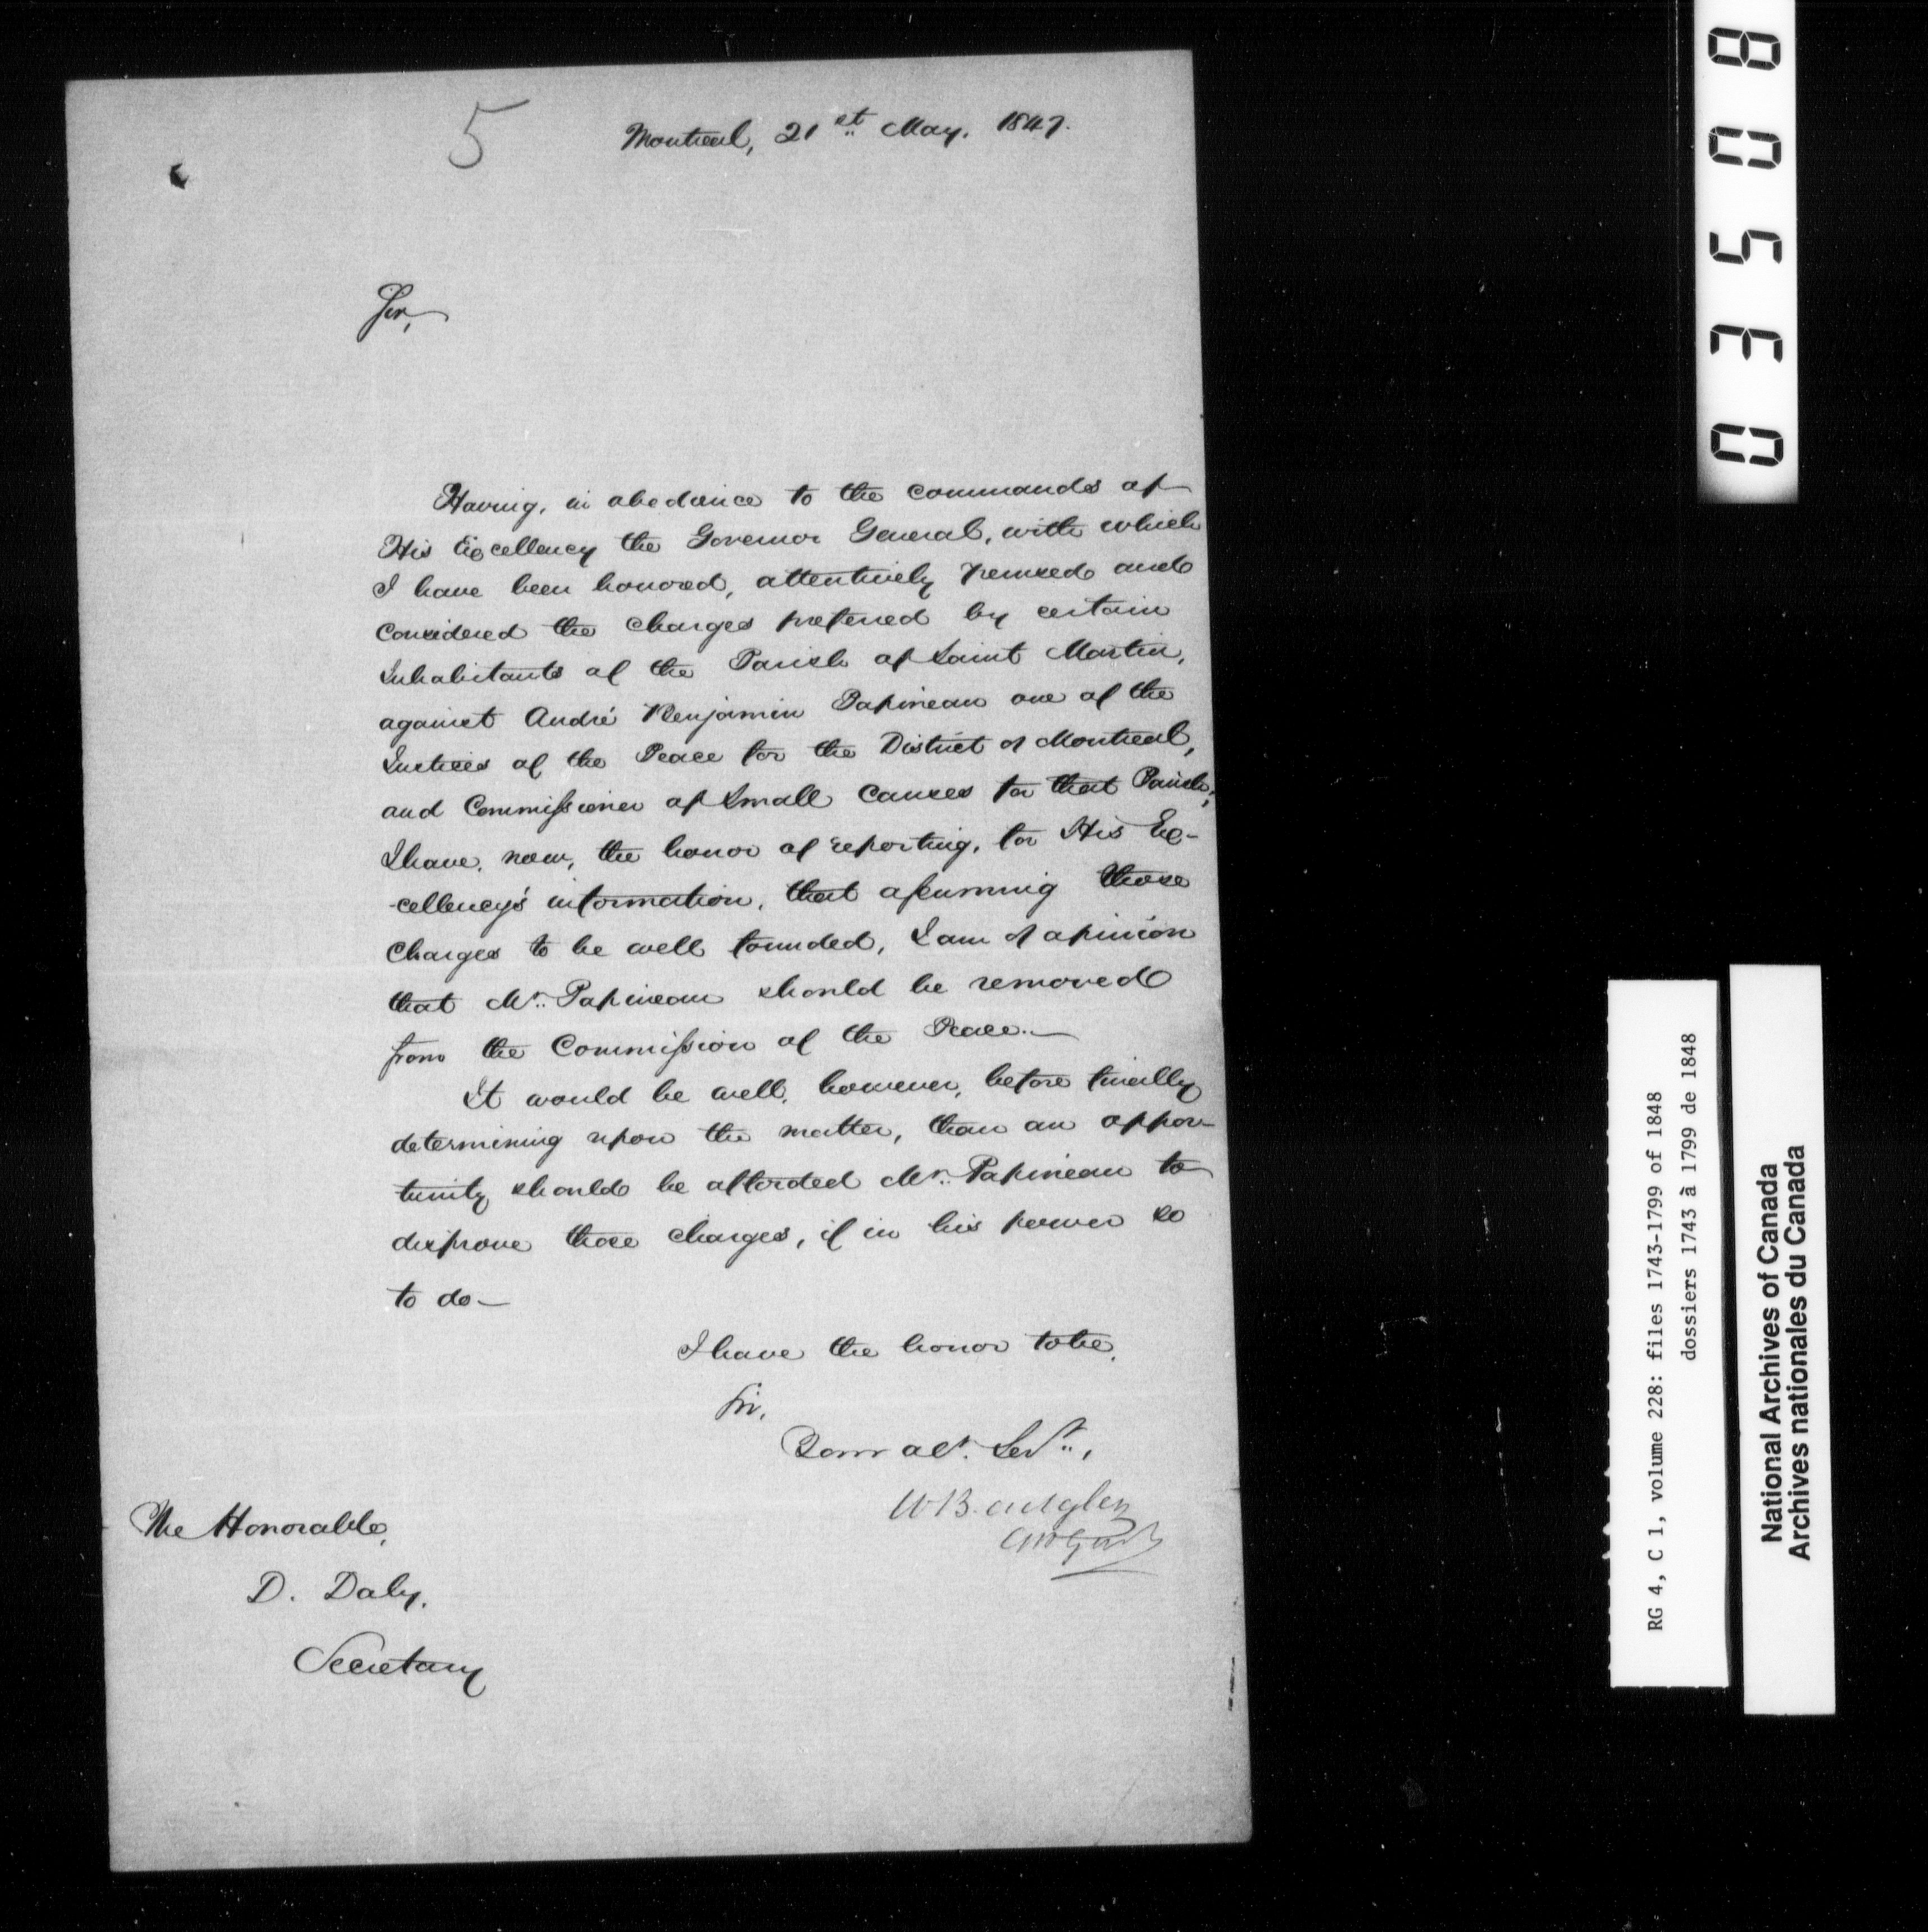 5
Montreal, 21st May. 1847.
Sir,
Having, in obedience to the commands of
His Excellency the Governor General, with which
I have been honored, attentively perused and
considered the charges preferred by certain
Inhabitants of the Parish of Saint Martin,
against André Benjamin Papineau one of the
Justices of the Peace for the District of Montreal,
and Commissioner of Small Causes for that Parish;
I have, now, the honor of reporting, for His Ex-
-cellency's information, that assuming those
Charges to be well founded, I am of opinion
that Mr. Papineau should be removed
from the Commission of the Peace.—
It would be well, however, before finally
determining upon the matter, than an oppor-
tunity should be afforded Mr. Papineau to
disprove those charges, if in his power so
to do—
I have the honor to be,
Sir,
Your obt. Servt.,
W B.
The Honorable,
D. Daly,
Secretary
03508
RG 4, C 1, volume 228: files 1743-1799 of 1848
dossiers 1743 à 1799 de 1848
National Archives of Canada
Archives nationales du Canada